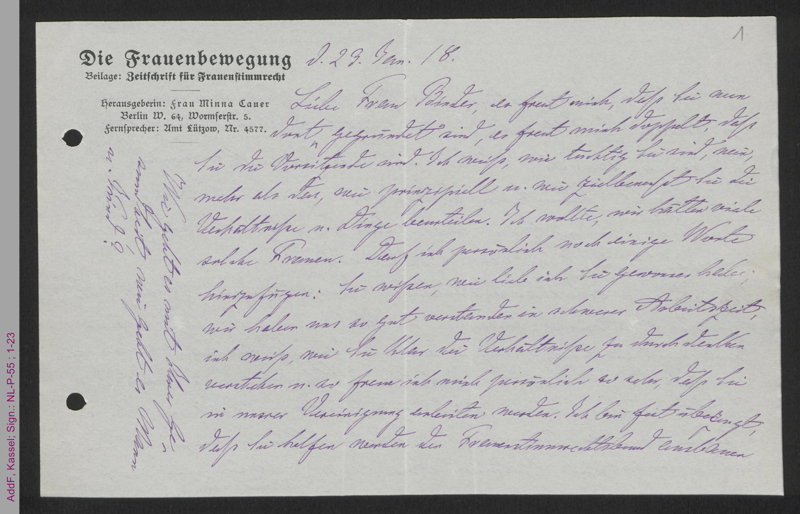 Die Frauenbewegung
Beilage: Zeitschrift für Frauenstimmrecht
Herausgeberin: Frau Minna Cauer
Berlin W. 64, Wormserstr. 5.
Fernsprecher: Amt Lützow, Nr. 4577.
1
d. 23. Jan. 18.
Liebe Frau, es freut mich, daß Sie nun
dort gegründet sind, es freut mich doppelt, daß
Sie die Vorsitzende sind. Ich weiß, wie tüchtig Sie sind, nein,
mehr als das, wie prinzipiell u. wie zielbewußt Sie die
Verhältnisse u. Dinge beurteilen. Ich wollte, wir hätten viele
solche Frauen. Darf ich persönlich noch einige Worte
hinzufügen: Sie wissen, wie lieb ich Sie gewonnen habe;
wir haben uns so gut verstanden in schwerer Arbeitszeit,
ich weiß, wie Sie klar die Verhältnisse zu durchdenken
verstehen u. so freue ich mich persönlich so sehr, daß Sie
in unsrer Vereinigung arbeiten werden. Ich bin fest überzeugt,
daß Sie helfen werden den Frauenstimmrechtsbund ausbauen
Wie geht es mit Ihrer Ge-
sundheit, wie geht es Mann
u. Kind?
AddF, Kassel; Sign.: NL-P-55 ; 1-23